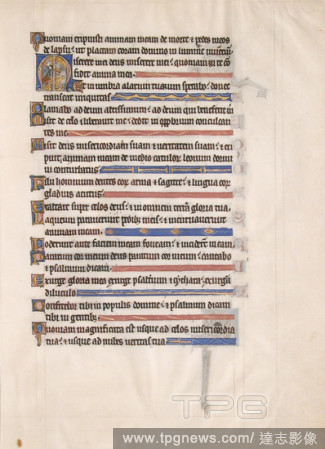 Quoniam eripuisti animam meam de morte et pedes meos
de lapsu: ut placeam coram domino in lumine
Miserere mei deus miserere mei: quoniam in te con
fidit anima mea.
Et in umbra alarum tuarum sperabo: donec
transeat iniquitas.
Clamabo ad deum altissimum: deum qui benefecit
Misit de celo et liberavit me: dedit in opprobrium conculcan
tes me.
Misit deus misericordiam suam et veritatem suam: et eri
puit animam meam de medio catulorum leonum dormi
vi conturbatus.
Filii hominum dentes eorum arma et sagitte: et lingua eorum
gladius acutus.
Exaltare super celos deus: et in omnem terram gloria tua.
Laqueum paraverunt pedibus meis: et incurvaverunt
animam meam.
Foderunt ante faciem meam foveam: et inciderunt in eam.
Paratum cor meum deus paratum cor meum: cantabo
et psalmum dicam.
Exurge gloria mea exurge psalterium et cythara: exurgam
diluculo.
Confitebor tibi in populis domine: et psalmum dicam
tibi in gentibus.
Quoniam magnificata est usque ad celos misericordia
tua: et usque ad nubes veritas tua.
TPG
www.tpgnews.com/達志影像